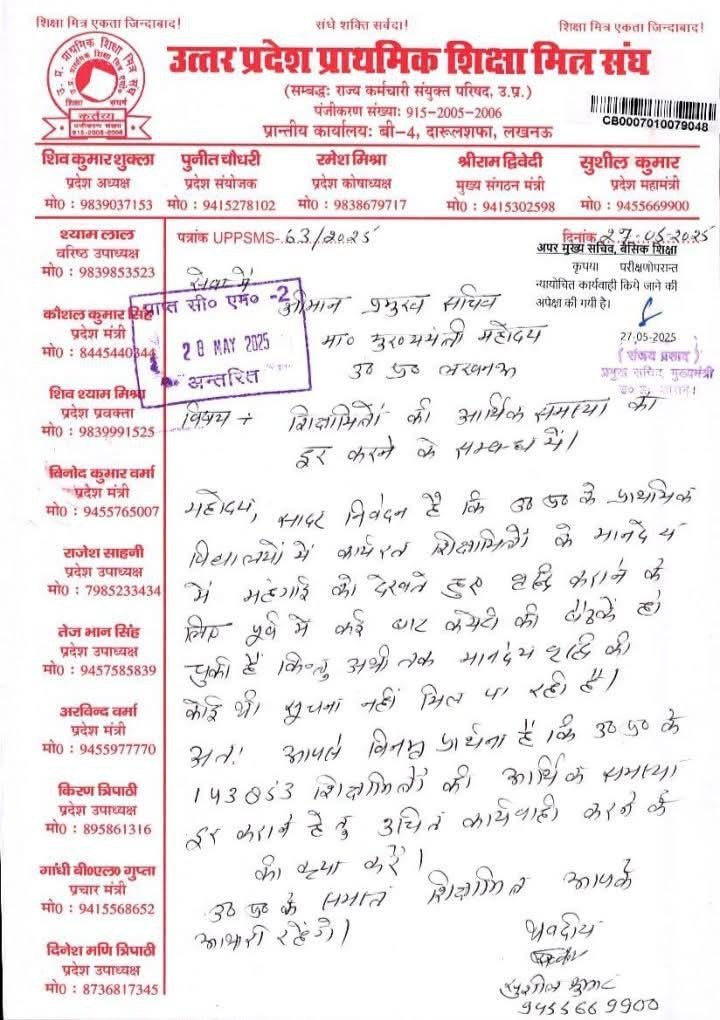 शिक्षा मित्र एकता जिन्दाबाद!
संघे शक्ति सर्वदा!
शिक्षा मित्र एकता जिन्दाबाद!
उ. प्र. प्राथमिक शिक्षा मित्र संघ
शिक्षा
संघर्ष
कर्तव्य
पंजीकरण संख्या
915-2005-2006
उत्तर प्रदेश प्राथमिक शिक्षा मित्र संघ
(सम्बद्धः राज्य कर्मचारी संयुक्त परिषद, उ.प्र.)
पंजीकरण संख्याः 915-2005-2006
प्रान्तीय कार्यालयः बी-4, दारूलशफा, लखनऊ
CB0007010079048
शिव कुमार शुक्ला
प्रदेश अध्यक्ष
मो0 : 9839037153
पुनीत चौधरी
प्रदेश संयोजक
मो0 : 9415278102
रमेश मिश्रा
प्रदेश कोषाध्यक्ष
मो0 : 9838679717
श्रीराम द्विवेदी
मुख्य संगठन मंत्री
मो0 : 9415302598
सुशील कुमार
प्रदेश महामंत्री
मो0 : 9455669900
श्याम लाल
वरिष्ठ उपाध्यक्ष
मो0 : 9839853523
कौशल कुमार सिंह
प्रदेश मंत्री
मो0 : 8445440344
शिव श्याम मिश्रा
प्रदेश प्रवक्ता
मो0 : 9839991525
विनोद कुमार वर्मा
प्रदेश मंत्री
मो0 : 9455765007
राजेश साहनी
प्रदेश उपाध्यक्ष
मो0 : 7985233434
तेज भान सिंह
प्रदेश उपाध्यक्ष
मो0 : 9457585839
अरविन्द वर्मा
प्रदेश मंत्री
मो0 : 9455977770
किरण त्रिपाठी
प्रदेश उपाध्यक्ष
मो0 : 895861316
गांधी बी०एल० गुप्ता
प्रचार मंत्री
मो0 : 9415568652
दिनेश मणि त्रिपाठी
प्रदेश उपाध्यक्ष
मो0 : 8736817345
पत्रांक UPPSMS-63/2025
दिनांक 27-05-2025
अपर मुख्य सचिव, बेसिक शिक्षा
कृपया परीक्षणोपरान्त
न्यायोचित कार्यवाही किये जाने की
अपेक्षा की गयी है।
27-05-2025
(संजय प्रसाद)
प्रमुख सचिव, मुख्यमंत्री
उ० प्र० शासन।
प्राप्त सी० एम० -2
28 MAY 2025
अन्तरित
सेवा में
श्रीमान प्रमुख सचिव
मा० मुख्यमंत्री महोदय
उ० प्र० लखनऊ
विषय - शिक्षामित्रों की आर्थिक समस्या को
दूर करने के सम्बन्ध में।
महोदय, सादर निवेदन है कि उ० प्र० के प्राथमिक
विद्यालयों में कार्यरत शिक्षामित्रों के मानदेय
में महंगाई को देखते हुए वृद्धि कराने के
लिए पूर्व में कई बार कमेटी की बैठकें हो
चुकी हैं किन्तु अभी तक मानदेय वृद्धि की
कोई भी सूचना नहीं मिल पा रही है।
अतः आपसे विनम्र प्रार्थना है कि उ० प्र० के
शिक्षामित्रों की आर्थिक समस्या
दूर कराने हेतु उचित कार्यवाही करने के
की कृपा करें।
उ० प्र० के समस्त शिक्षामित्र आपके
आभारी रहेंगे।
भवदीय
सुशील कुमार
9455669900